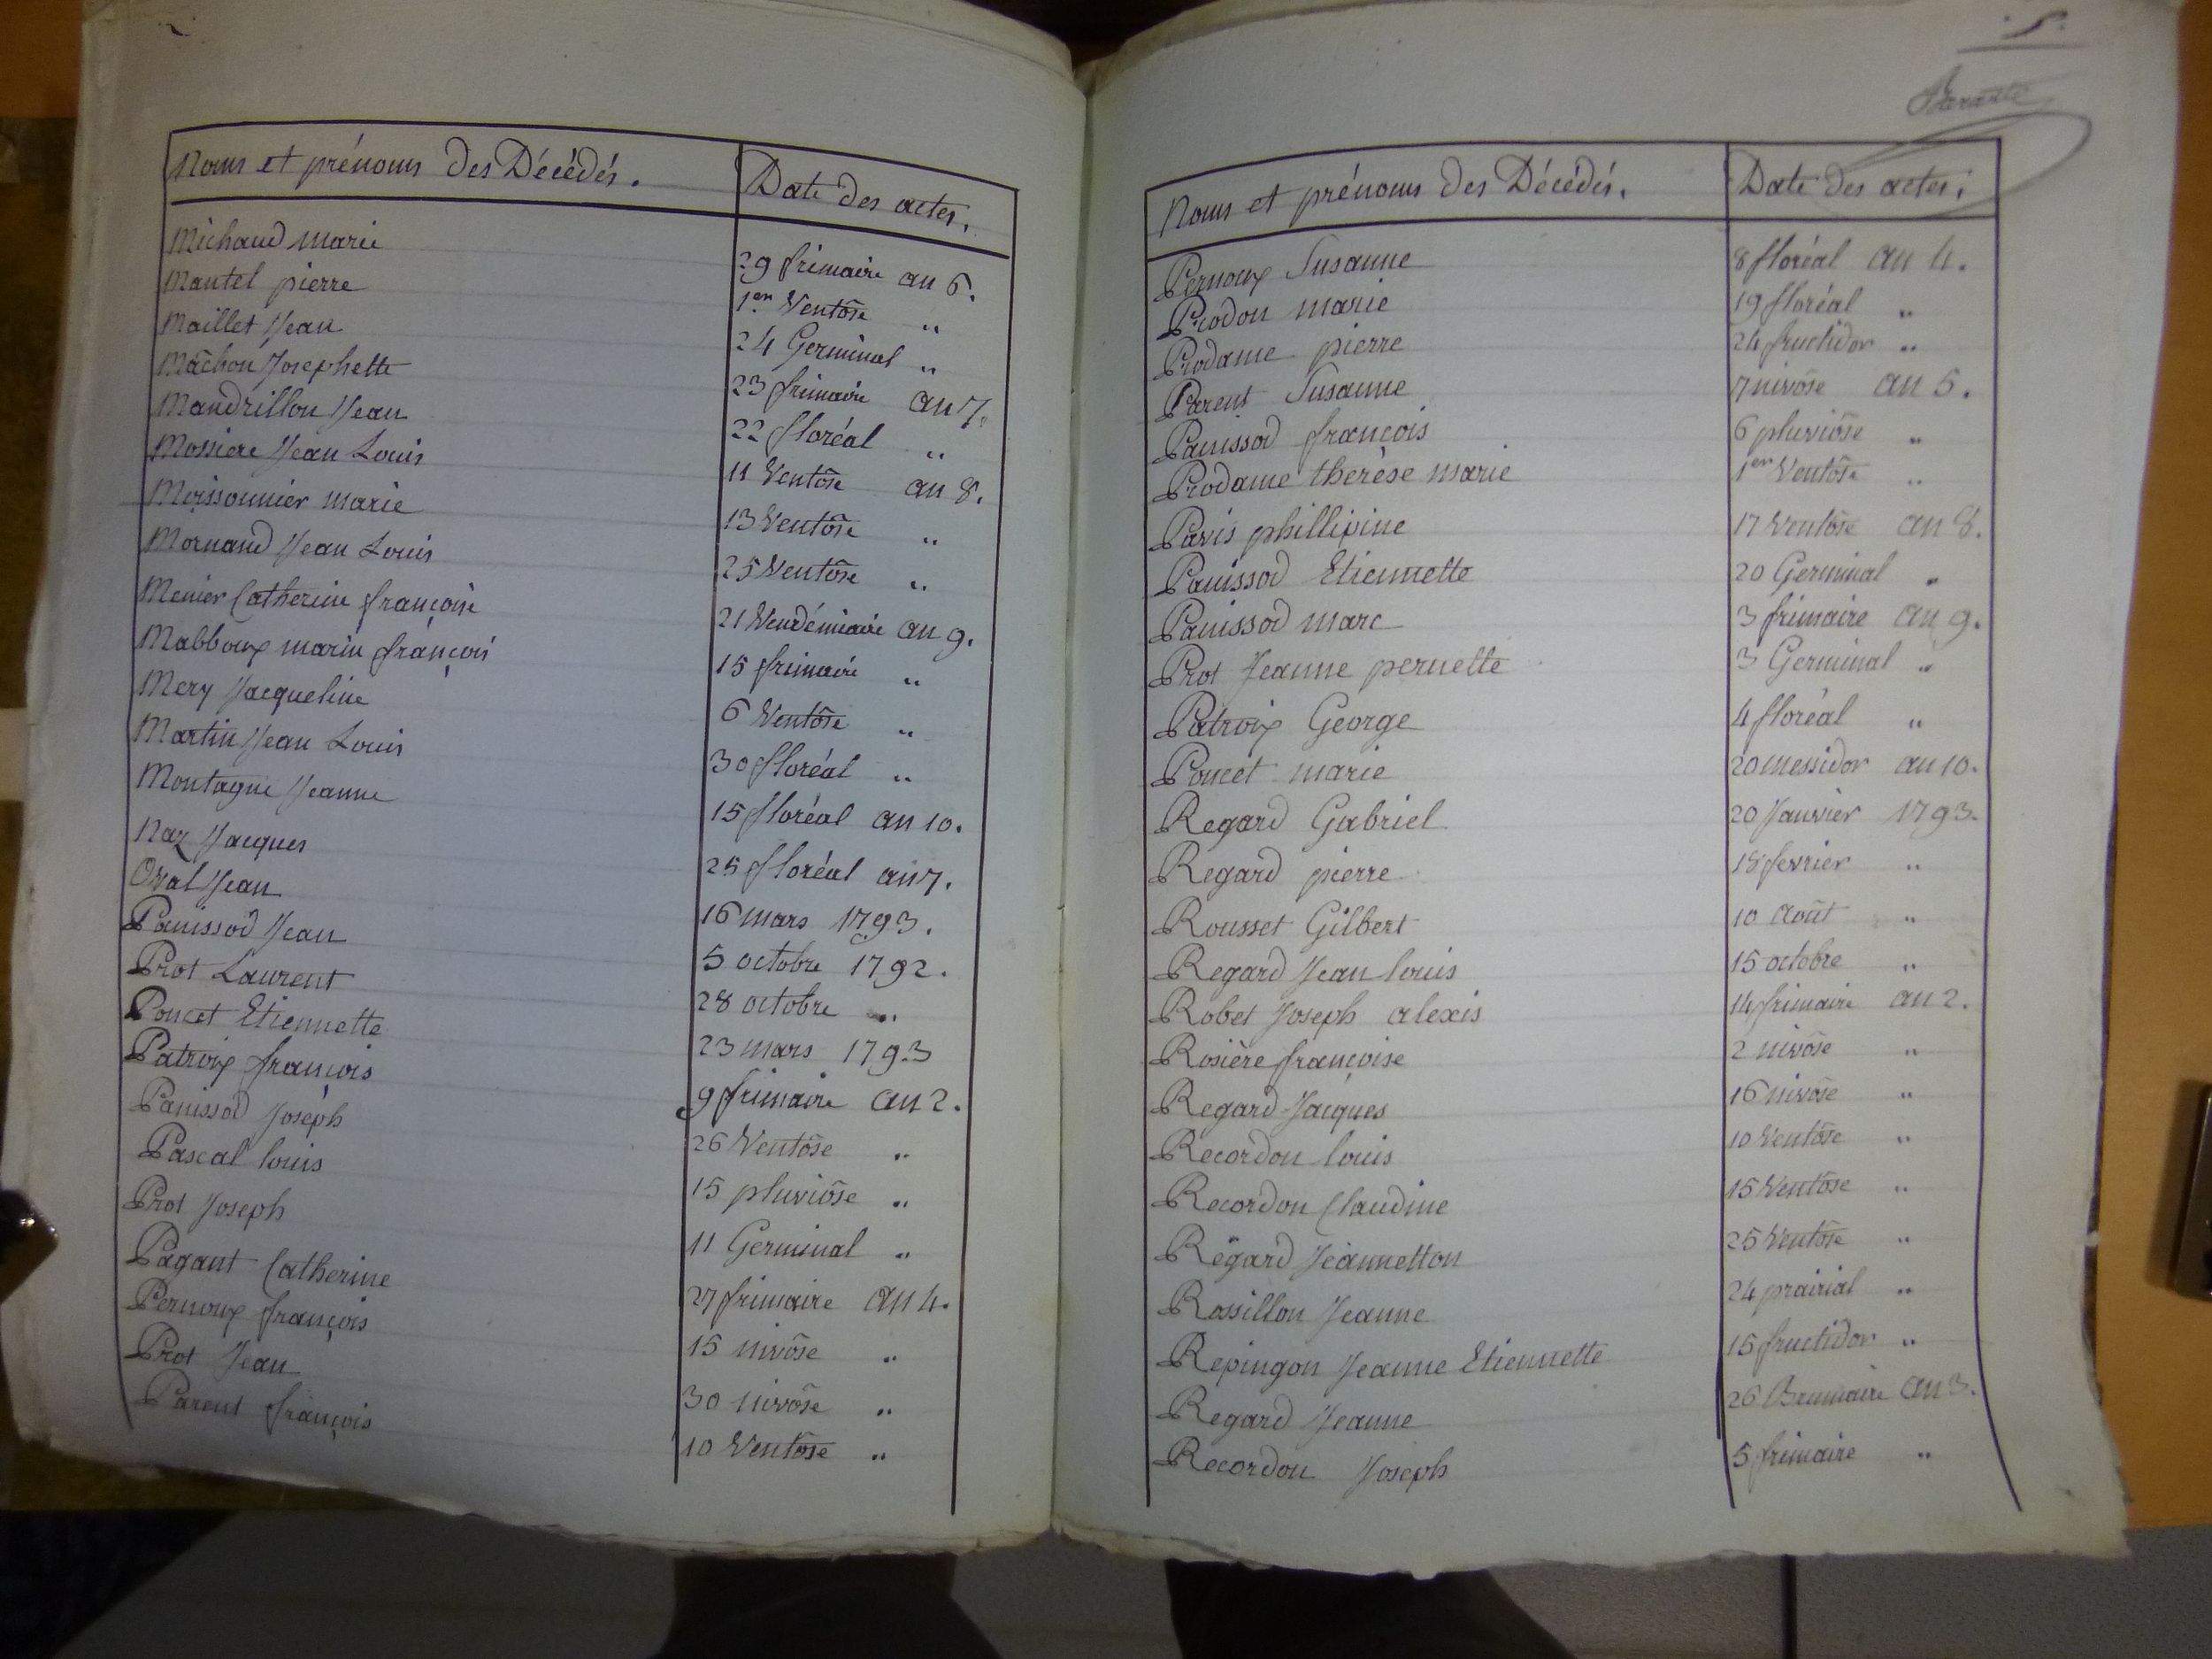 Noms et prénoms des Décédés. Date des actes.
Michaud marie 29 frimaire an 6.
Mantel pierre 1er Ventôse "
Maillet Jean 24 Germinal "
Mâchon Josephette 23 frimaire an 7.
Mandrillon Jean 22 floréal "
Mossiere Jean Louis 11 Ventôse an 8.
Moissonnier marie 13 Ventôse "
Mornand Jean Louis 25 Ventôse "
Menier Catherine françoise 21 Vendémiaire an 9.
Mabboux marin françois 15 frimaire "
Mery Jacqueline 6 Ventôse "
Martin Jean Louis 30 floréal "
Montagne Jeanne 15 floréal an 10.
Naz Jacques 25 floréal an 7.
Oval Jean 16 mars 1793.
Panissod Jean 5 octobre 1792.
Prot Laurent 28 octobre "
Poncet Etiennette 23 mars 1793
Patroix françois 9 frimaire an 2.
Panissod Joseph 26 Ventôse "
Pascal louis 15 pluviôse "
Prot Joseph 11 Germinal "
Pagant Catherine 27 frimaire an 4.
Pernoux françois 15 nivôse "
Prot Jean 30 nivôse "
Parent françois 10 Ventôse "
5.
Noms et prénoms des Décédés. Date des actes.
Pernoux Susanne 8 floréal an 4.
Prodon marie 19 floréal "
Prodame pierre 24 fructidor "
Parent Susanne 7 nivôse an 5.
Panissod françois 6 pluviôse "
Prodame therèse marie 1er Ventôse "
Pavis phillipine 17 Ventôse an 8.
Panissod Etiennette 20 Germinal "
Panissod marc 3 frimaire an 9.
Prot Jeanne pernette 3 Germinal "
Patroix George 4 floréal "
Poncet marie 20 messidor an 10.
Regard Gabriel 20 Janvier 1793.
Regard pierre 18 fevrier "
Rousset Gilbert 10 Août "
Regard Jean louis 15 octobre "
Robet Joseph alexis 14 frimaire an 2.
Rosière françoise 2 nivôse "
Regard Jacques 16 nivôse "
Recordon louis 10 Ventôse "
Recordon Claudine 15 Ventôse "
Regard Jeannetton 25 Ventôse "
Rossillon Jeanne 24 prairial "
Repingon Jeanne Etiennette 15 fructidor "
Regard Jeanne 26 Brumaire an 3.
Recordon Joseph 5 frimaire "